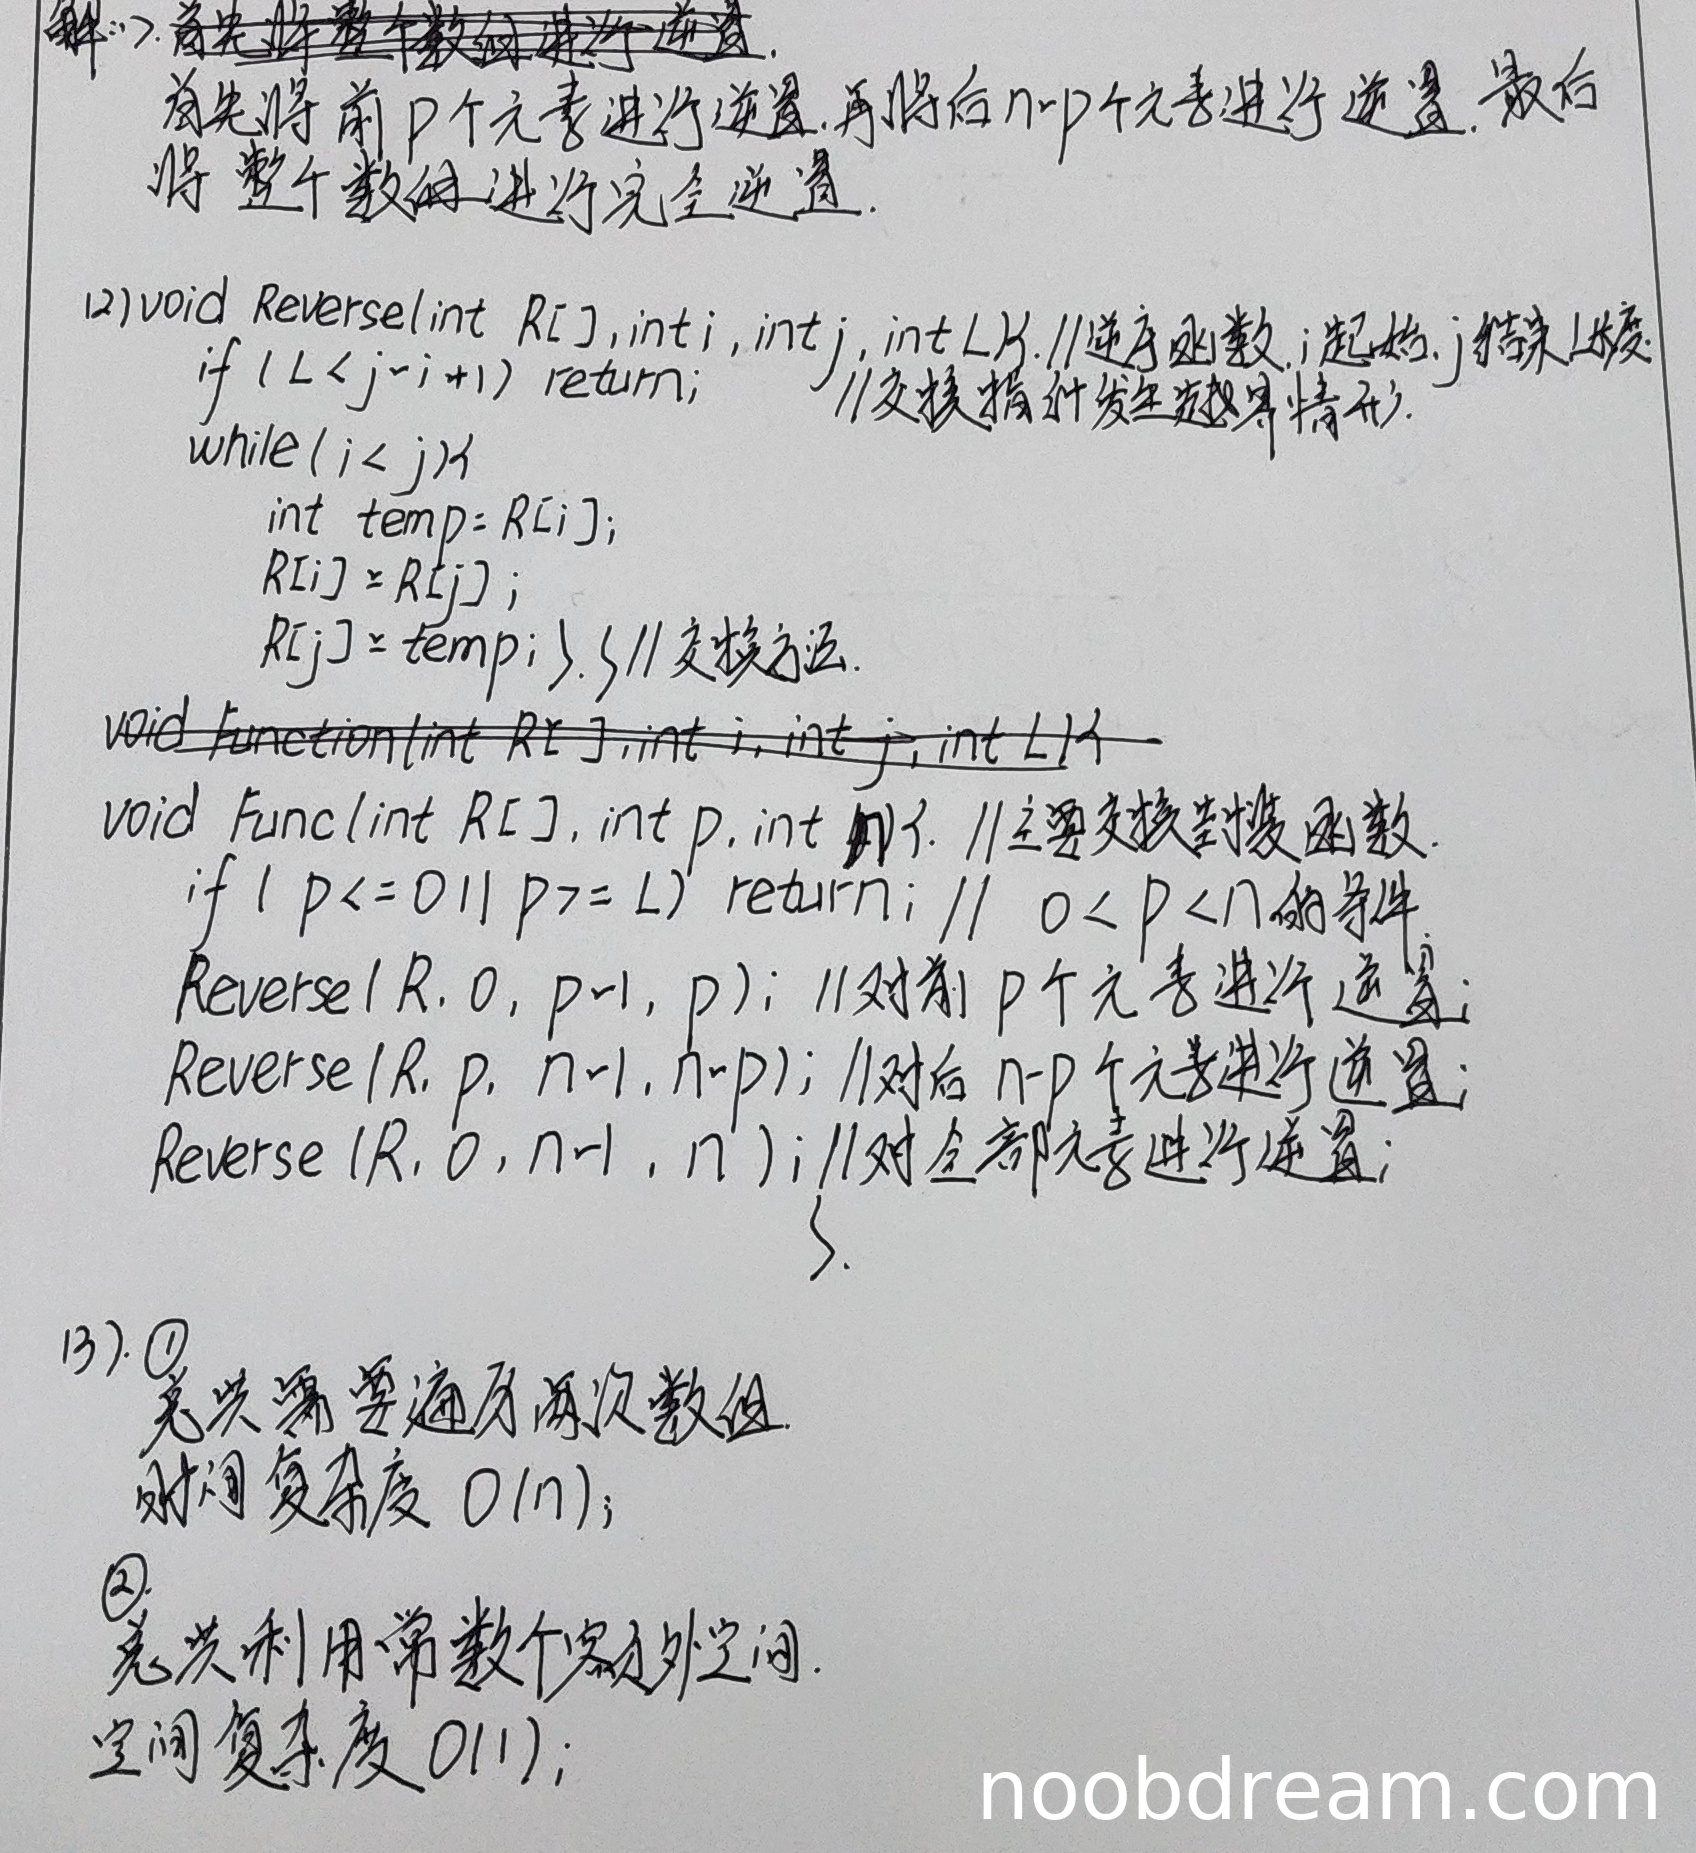 解:1). 首先将整个数组进行逆置.
首先将前p个元素进行逆置.再将后n-p个元素进行逆置.最后
将整个数组进行完全逆置.
(2)void Reverse(int R[],int i,int j,int L){.//逆序函数.i起始.j结束L长度.
if(L<j-i+1) return; //交换指针发生越界情形.
while(i<j){
int temp=R[i];
R[i]=R[j];
R[j]=temp;}.}//交换方法.
void Function(int R[],int i,int j,int L){
void Func(int R[],int p,int n){. //主要交换封装函数.
if(p<=0||p>=L) return; // 0<p<n的条件.
Reverse(R,0,p-1,p); //对前p个元素进行逆置;
Reverse(R,p,n-1,n-p); //对后n-p个元素进行逆置;
Reverse(R,0,n-1,n); //对全部元素进行逆置;
}.
(3).①
总共需要遍历两次数组.
时间复杂度O(n);
②.
总共利用常数个额外空间.
空间复杂度O(1);
noobdream.com